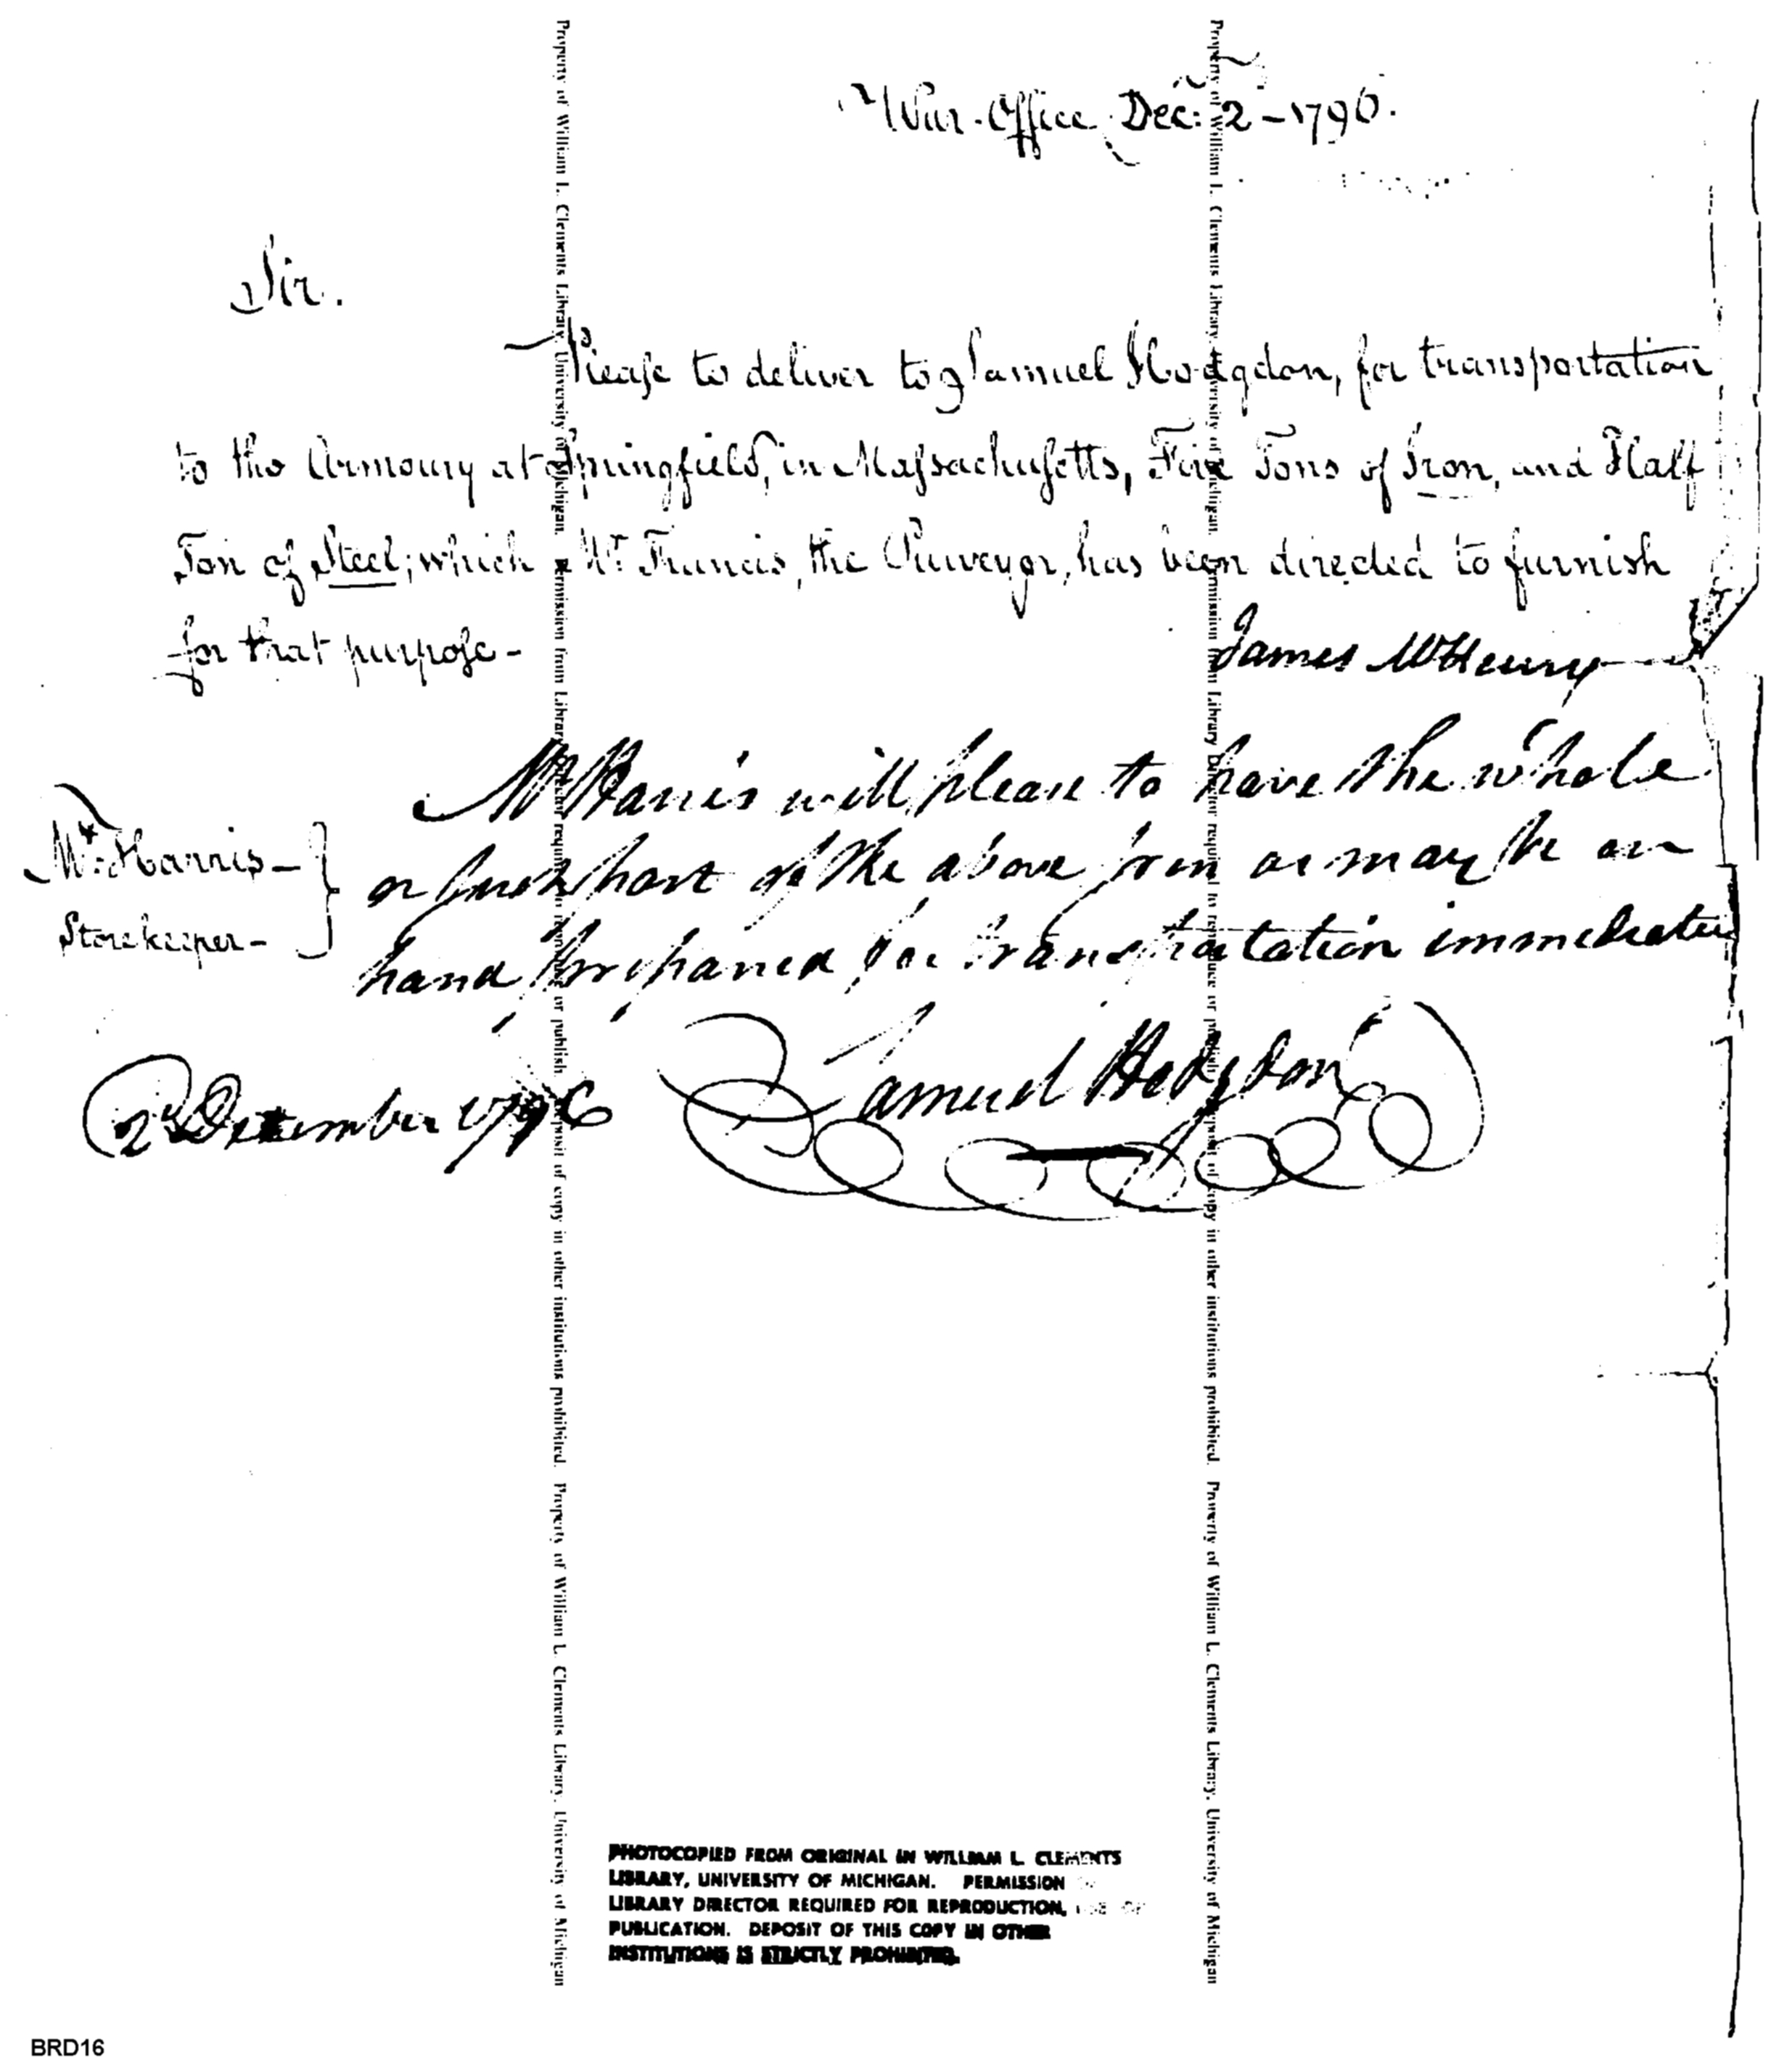 War-Office Decr: 2-1796.
Sir.
Please to deliver to Samuel Hodgdon, for transportation
to the Armoury at Springfield, in Massachusetts, Five Tons of Iron, and Half
Ton of Steel; which Mr. Francis, the Purveyor, has been directed to furnish
for that purpose-
James McHenry
Mr. Harris-
Storekeeper-
Mr Harris will please to have the whole
or such part of the above iron as may be on
hand prepared for transportation immediately
2d December 1796
Samuel Hodgdon
PHOTOCOPIED FROM ORIGINAL IN WILLIAM L. CLEMENTS
LIBRARY, UNIVERSITY OF MICHIGAN. PERMISSION
LIBRARY DIRECTOR REQUIRED FOR REPRODUCTION, USE OR
PUBLICATION. DEPOSIT OF THIS COPY IN OTHER
INSTITUTIONS IS STRICTLY PROHIBITED.
Property of William L. Clements Library, University of Michigan. Permission from Library Director required to reproduce or publish. Deposit of copy in other institutions prohibited. Property of William L. Clements Library, University of Michigan
Property of William L. Clements Library, University of Michigan. Permission from Library Director required to reproduce or publish. Deposit of copy in other institutions prohibited. Property of William L. Clements Library, University of Michigan
BRD16